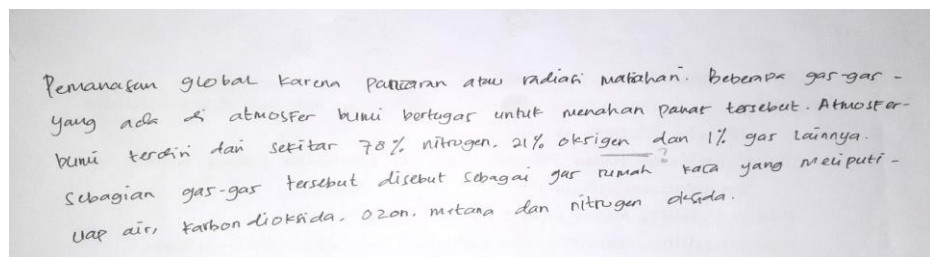 Pemanasan global karena pancaran atau radiasi matahari. Beberapa gas-gas -
yang ada di atmosfer bumi bertugas untuk menahan panas tersebut. Atmosfer-
bumi terdiri dari sekitar 78% nitrogen. 21% oksigen dan 1% gas lainnya.
Sebagian gas-gas tersebut disebut sebagai gas rumah ? kaca yang meliputi -
uap air, karbondioksida. ozon. metana dan nitrogen oksida.